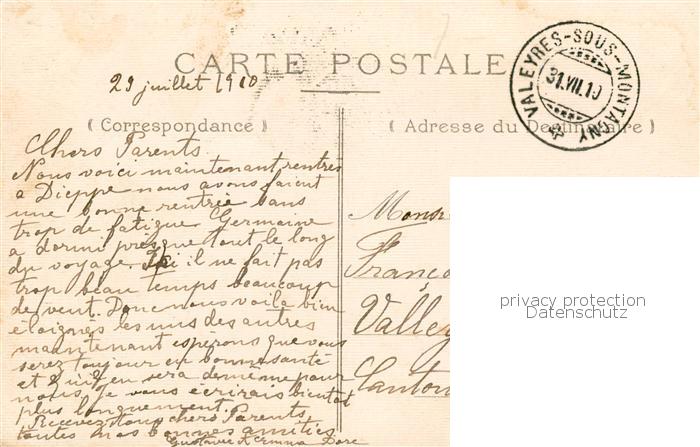 CARTE POSTALE
VALEYRES-SOUS-MONTAGNY
31.VII.10
29 juillet 1910
(Correspondance)
(Adresse du Destinataire)
Chers Parents
Nous voici maintenant rentrés
a Dieppe nous avons faient
une bonne rentrée sans
trop de fatigue Germaine
a dormi presque tout le long
du voyage. Ici il ne fait pas
trop beau temps beaucoup
de vent. Donc nous voila bien
éloignés les uns des autres
maintenant espérons que vous
serez toujour en bonne santé
et qu'il en sera de même pour
nous. Je vous écrirais bientot
plus longuement.
Recevez tous chers Parents
toutes nos bonnes amitiés
Gustave
Monsi
Franço
Valley
Canton
privacy protection
Datenschutz